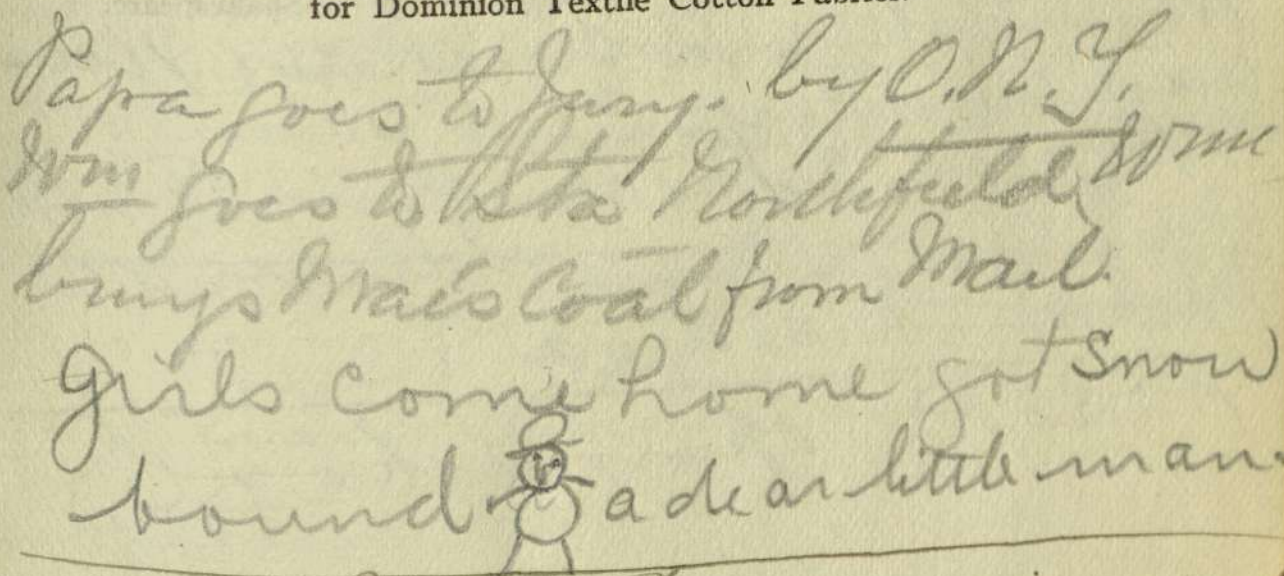 for Dominion Textile Cotton Fabrics
Papa goes to Jury. by O.N.Y.
Wm goes to Sta Northfield, Wm
brings Mae's Coal from Mail.
Girls come home got snow
bound a dear little man.